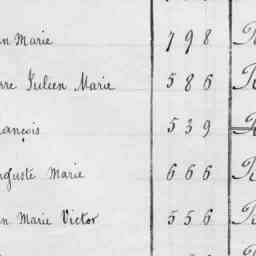 n Marie 798 R
rre Julien Marie 586 R
rançois 539 R
uguste Marie 666 R
n Marie Victor 556 R